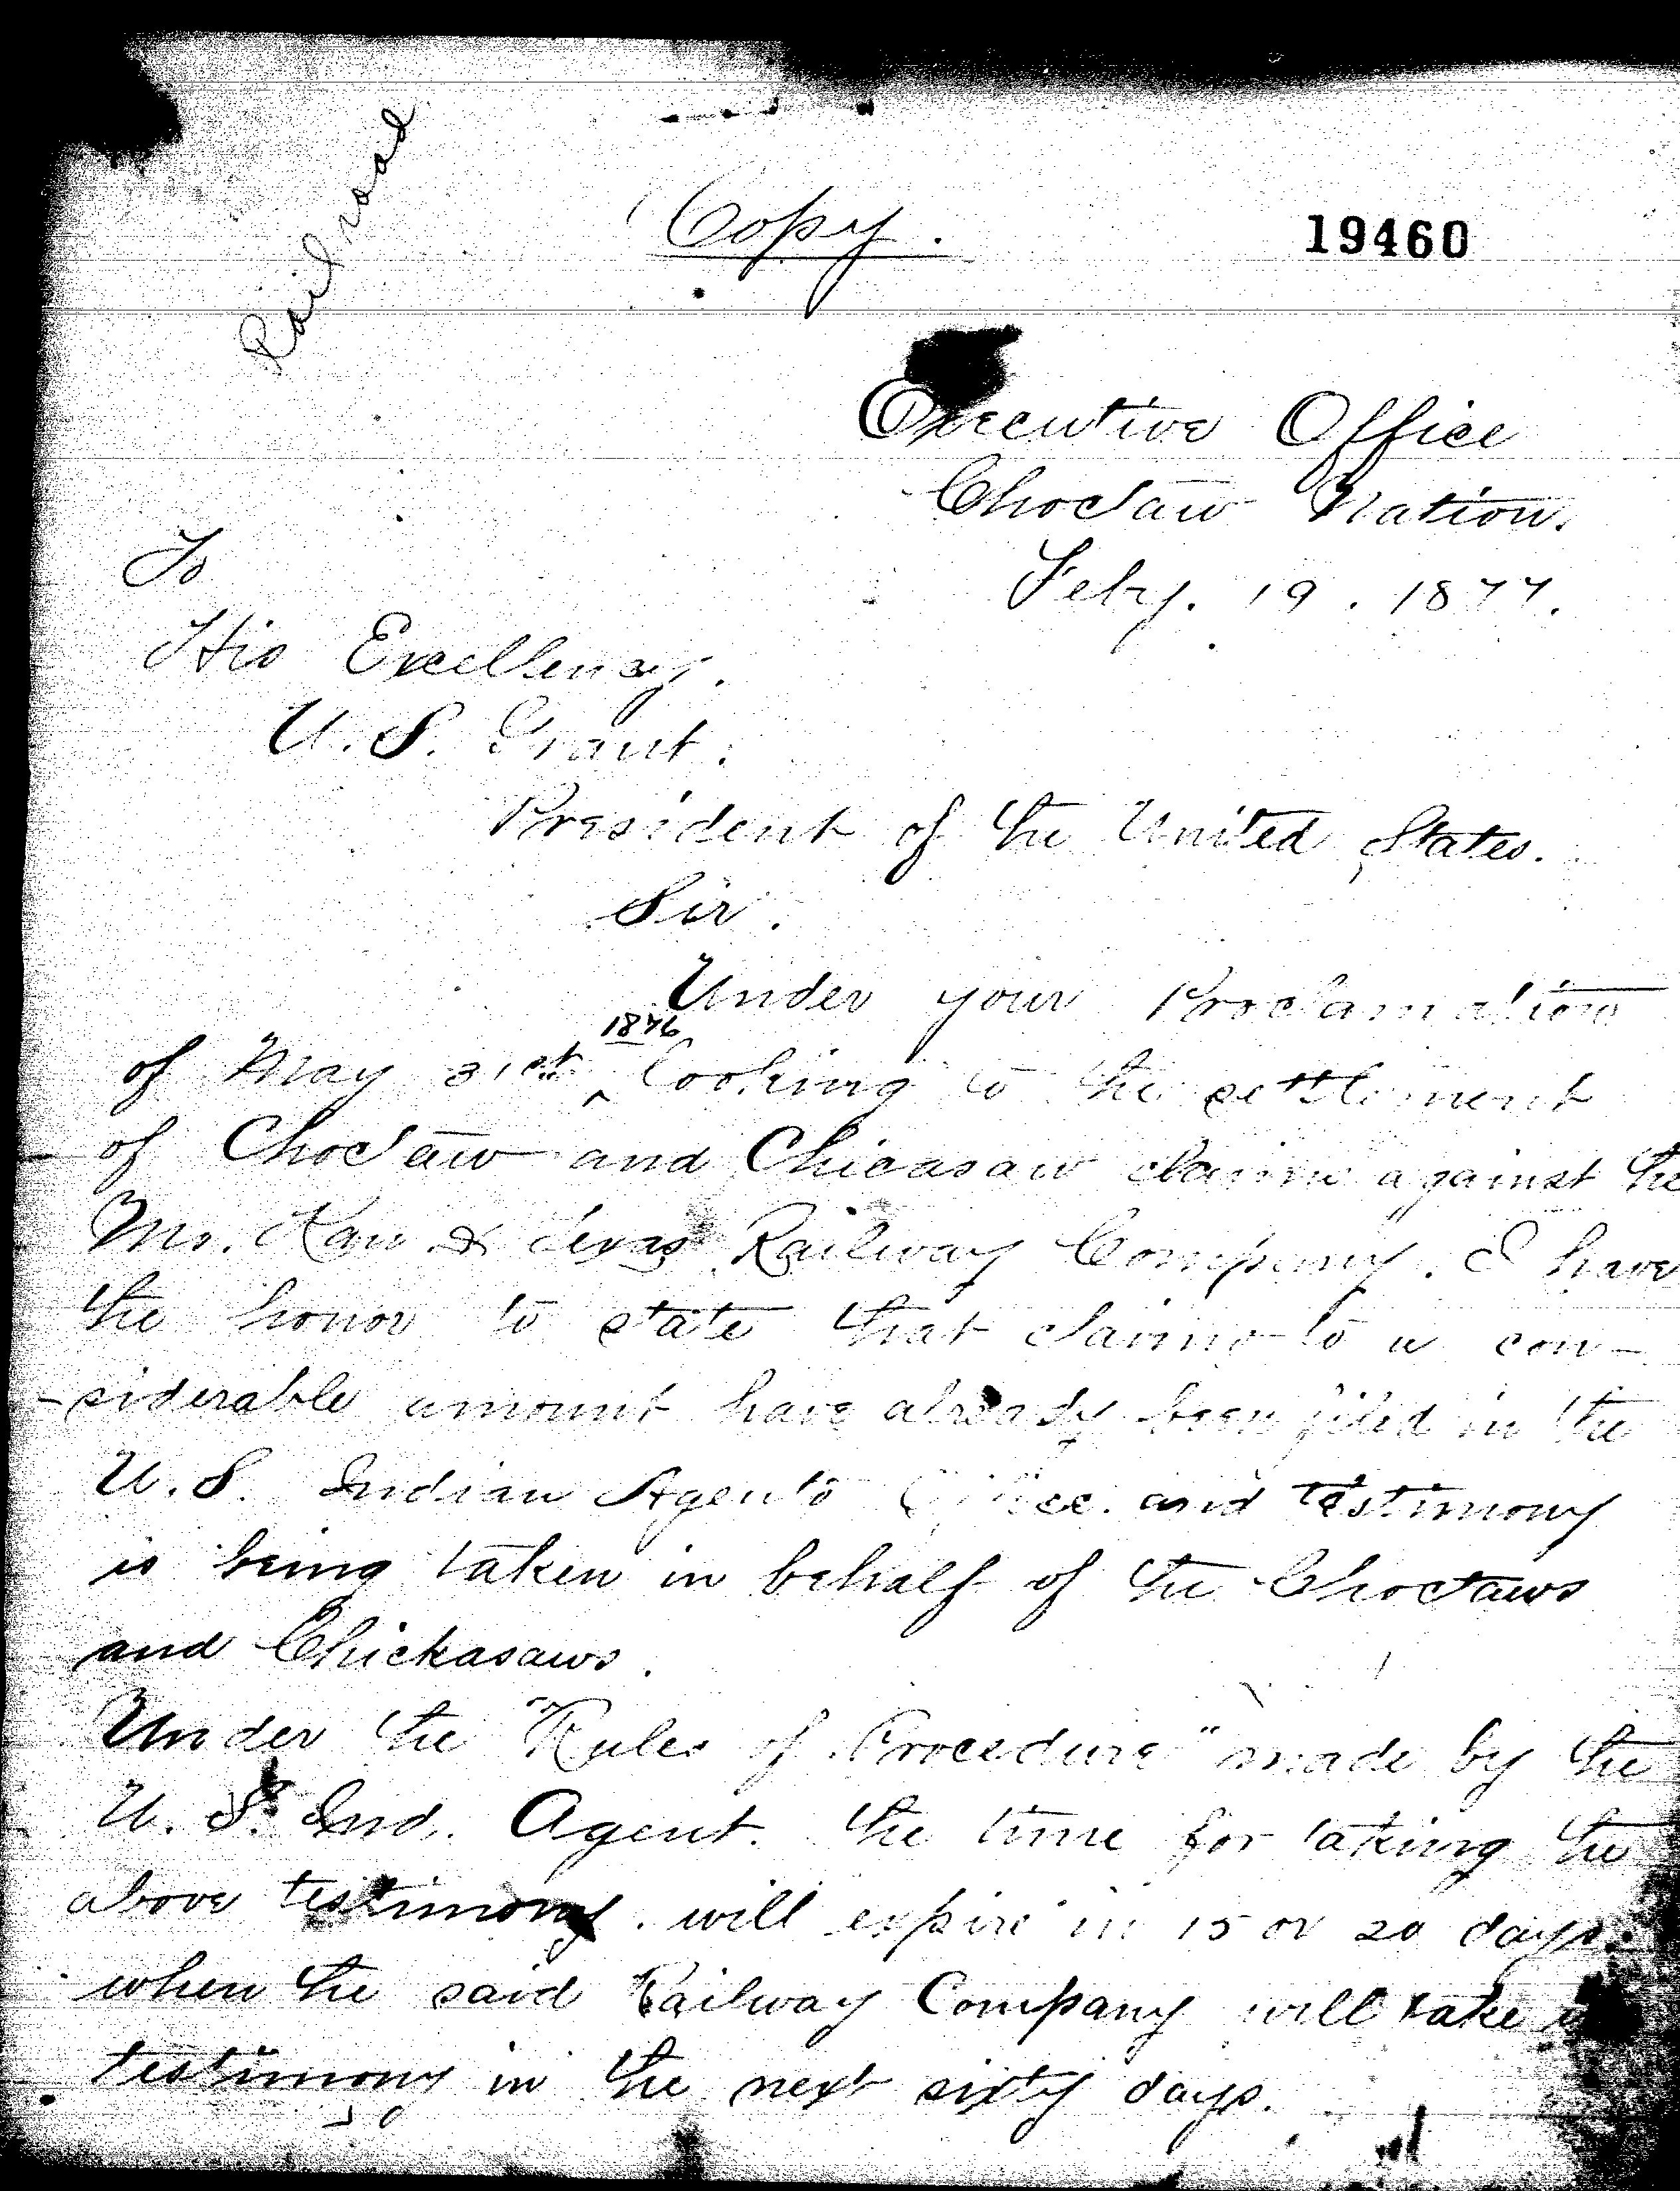 Railroad
Copy.
19460
Executive Office
Choctaw Nation.
Feby. 19. 1877.
To
His Excellency.
U.S. Grant.
President of the United States.
Sir.
Under your Proclamation
1876
of May 31st ^ looking to the settlement
of Choctaw and Chicasaw claims against the
Mo. Kan & Texas Railway Company. I have
the honor to state that claims to a con-
-siderable amount have already been filed in the
U.S. Indian Agents Office. and testimony
is being taken in behalf of the Choctaws
and Chickasaws.
Under the "Rules of Procedure" made by the
U.S. Ind. Agent. the time for taking the
above testimony. will expire in 15 or 20 days.
when the said Railway Company will take
testimony in the next sixty days.